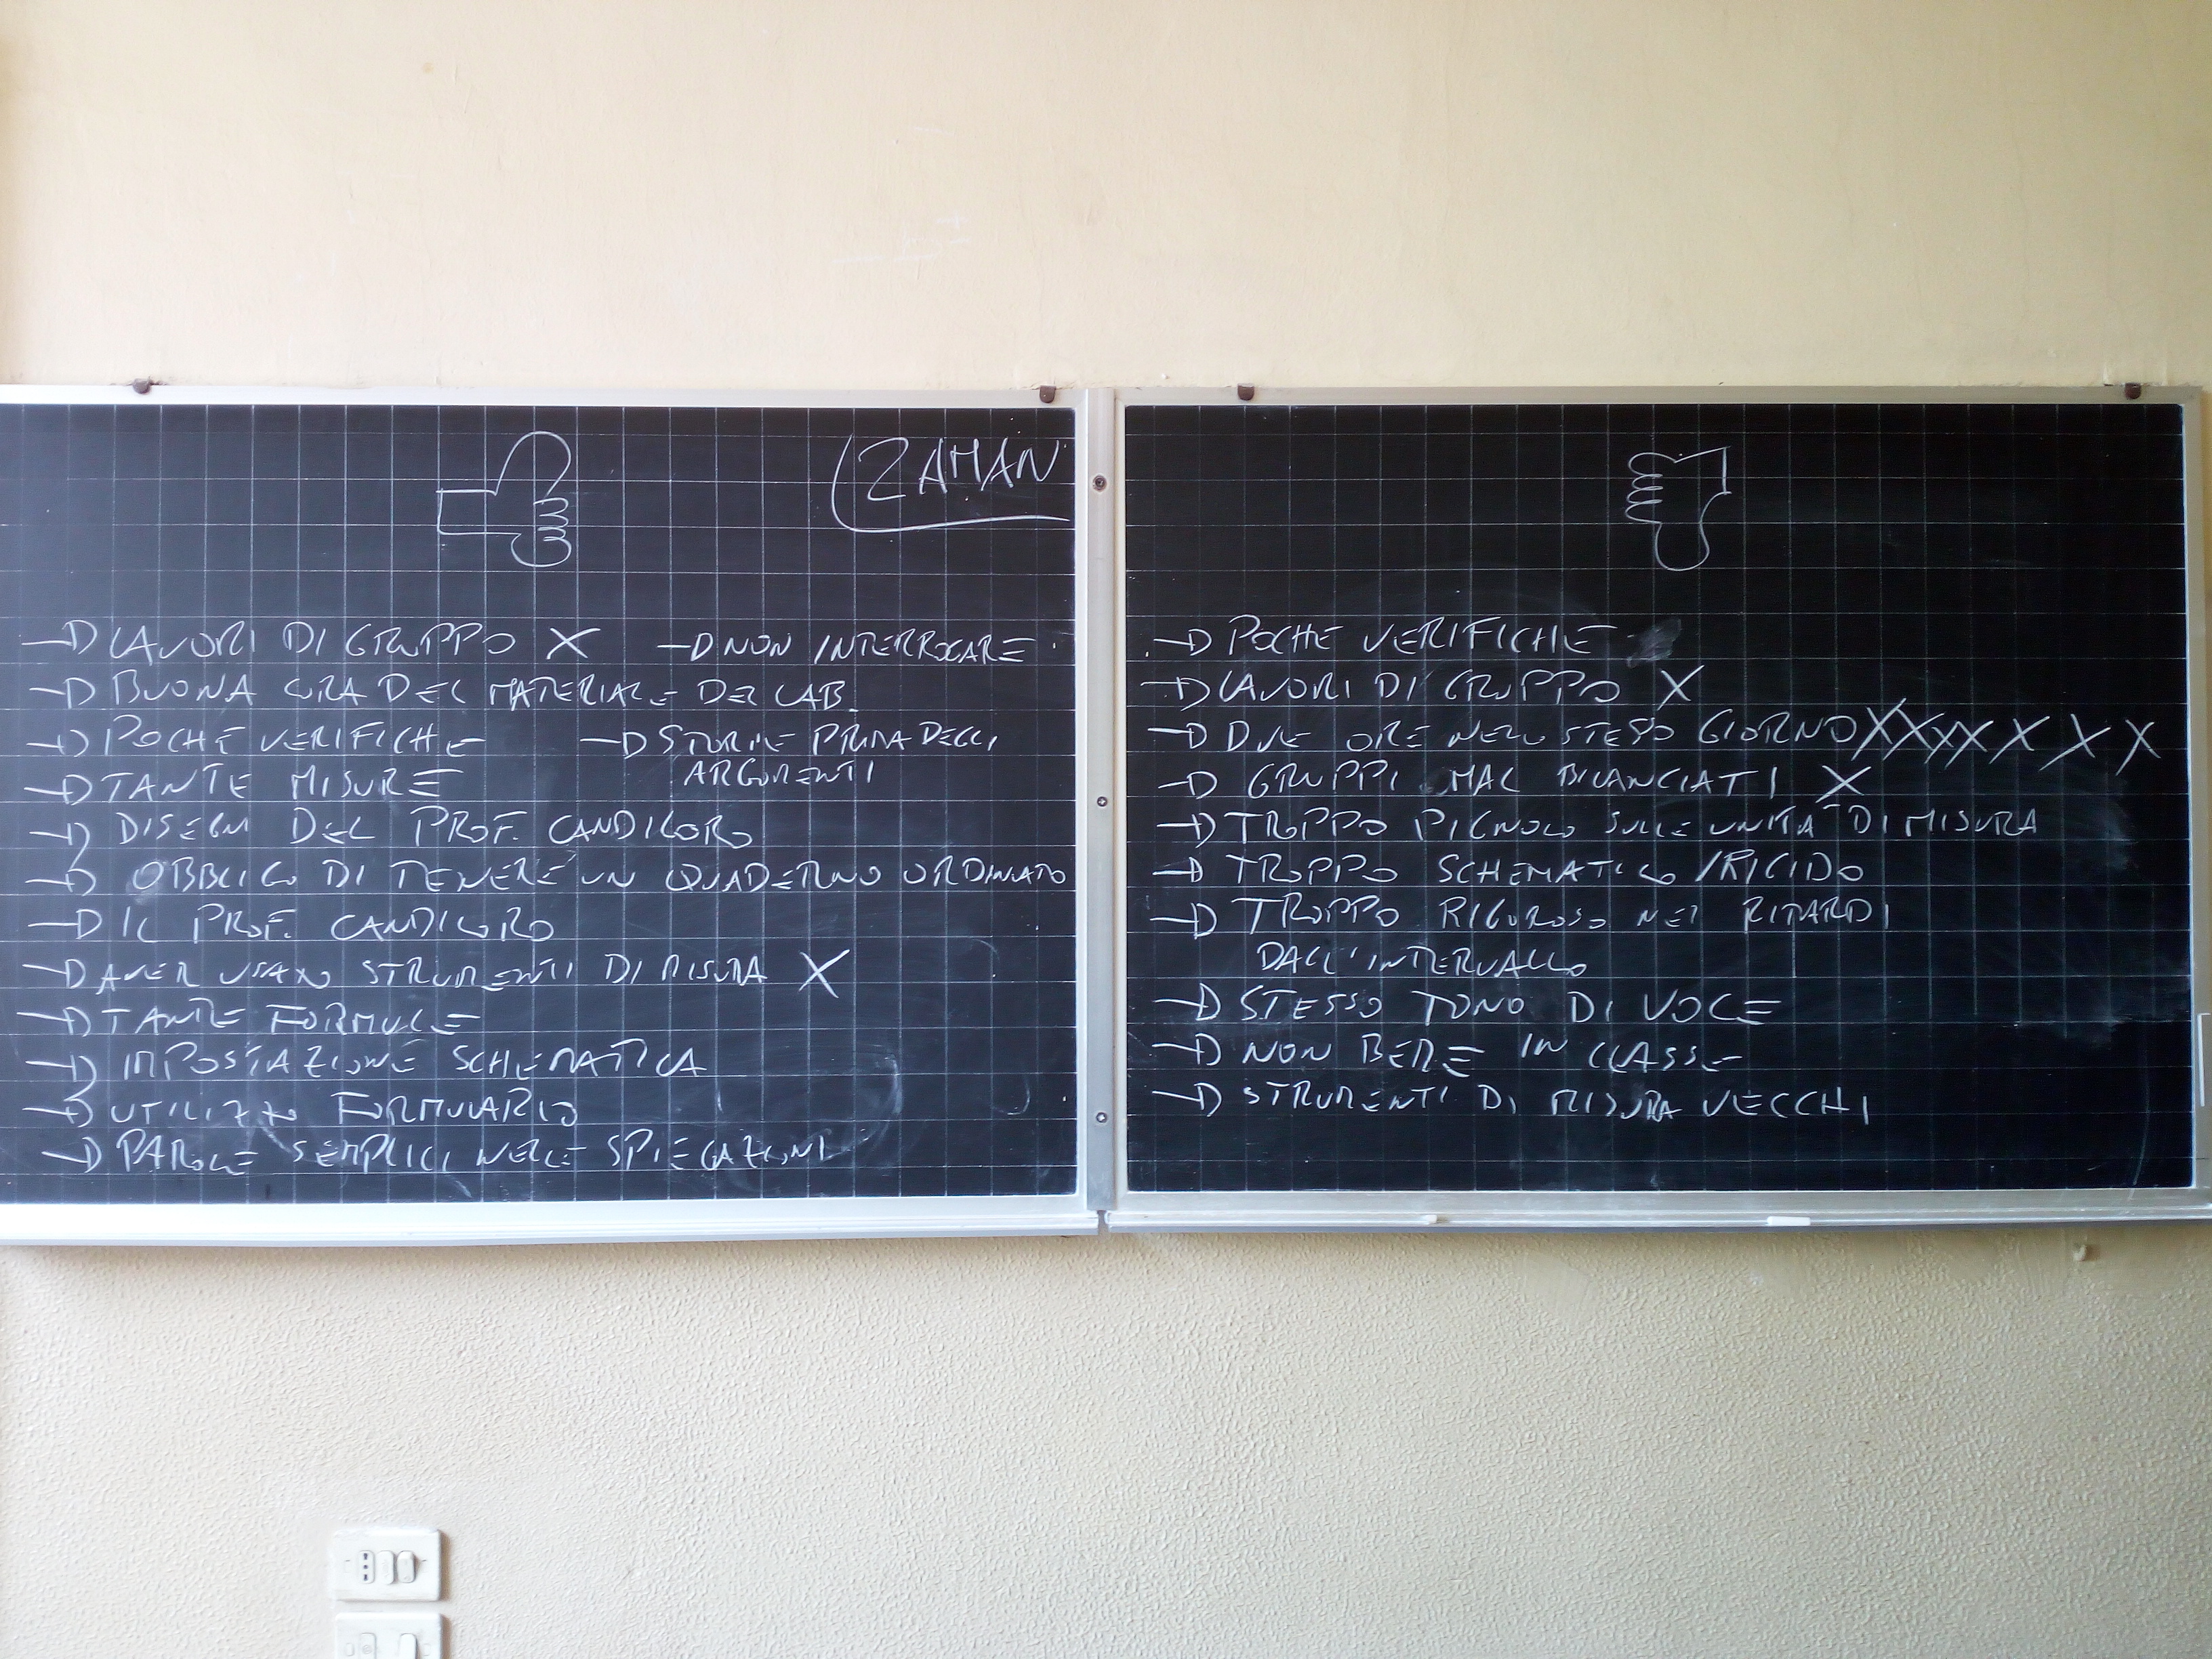 ZAMAN
→ LAVORI DI GRUPPO X → NON INTERROGARE
→ BUONA CURA DEL MATERIALE DEL LAB.
→ POCHE VERIFICHE → STORIE PRIMA DEGLI
ARGOMENTI
→ TANTE MISURE
→ DISEGNI DEL PROF. CANDILORO
→ OBBLIGO DI TENERE UN QUADERNO ORDINATO
→ IL PROF. CANDILORO
→ AVER USATO STRUMENTI DI MISURA X
→ TANTE FORMULE
→ IMPOSTAZIONE SCHEMATICA
→ UTILIZZO FORMULARIO
→ PAROLE SEMPLICI NELLE SPIEGAZIONI
→ POCHE VERIFICHE
→ LAVORI DI GRUPPO X
→ DUE ORE NELLO STESSO GIORNO XXXXXXX
→ GRUPPI MAL BILANCIATI X
→ TROPPO PIGNOLO SULLE UNITÀ DI MISURA
→ TROPPO SCHEMATICO/RIGIDO
→ TROPPO RIGOROSO NEI RITARDI
DALL'INTERVALLO
→ STESSO TONO DI VOCE
→ NON BERE IN CLASSE
→ STRUMENTI DI MISURA VECCHI